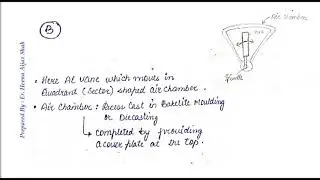 B
Air Chamber
Vane
Spindle
• Here Al Vane which moves in
Quadrant (Sector) shaped air chamber.
• Air Chamber : Recess Cast in Bakelite Moulding
or Diecasting
completed by providing
a cover plate at the top.
Prepared By: Er. Heena Aijaz Shah